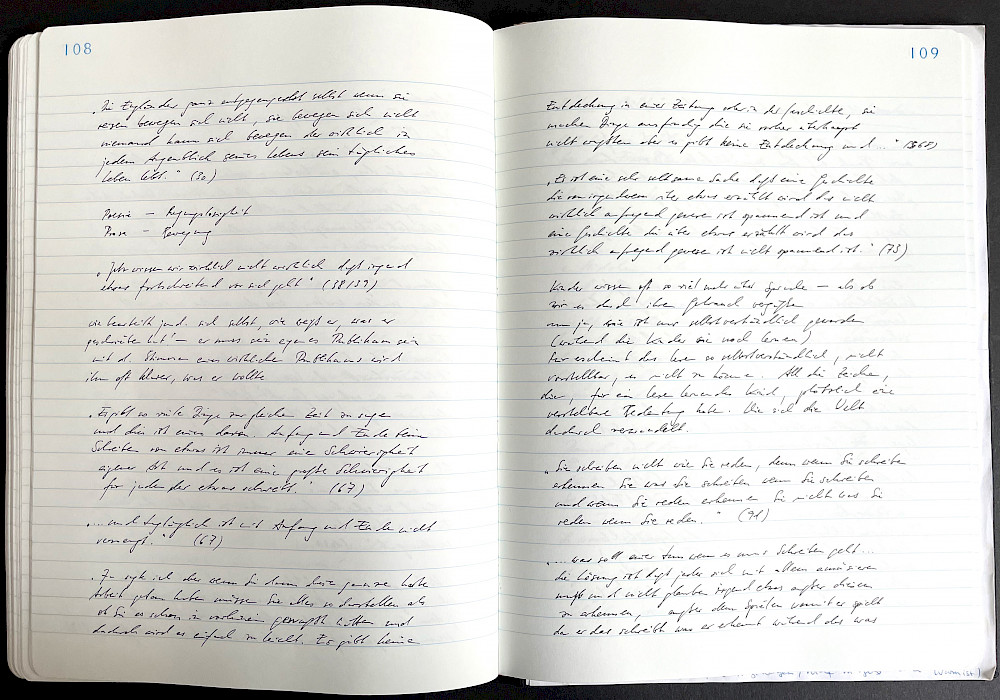 108
„Die Engländer ganz entgegengesetzt selbst wenn sie
reisen bewegen sich nicht, sie bewegen sich nicht
niemand kann sich bewegen der wirklich in
jedem Augenblick seines Lebens sein tägliches
Leben lebt." (30)
Poesie – Regungslosigkeit
Prosa – Bewegung
„Jetzt wissen wir wirklich nicht wirklich daß irgend
etwas fortschreitend vor sich geht" (38/39)
wie beurteilt jmd. sich selbst, wie weiß er, was er
geschrieben hat – er muss sein eigenes Publikum sein
mit d. Stimmen eines wirklichen Publikums wird
ihm oft klarer, was er wollte
„Es gibt so viele Dinge zur gleichen Zeit zu sagen
und dies ist eines davon. Anfang und Ende beim
Schreiben von etwas ist immer eine Schwierigkeit
eigener Art und es ist eine große Schwierigkeit
für jeden der etwas schreibt." (67)
„... und tagtäglich ist mit Anfang und Ende nicht
vermengt." (67)
sagte ich aber wenn Sie dann diese ganze harte
Arbeit getan haben müssen Sie alles so darstellen als
ob Sie es schon im vorhinein gewußt hätten und
dadurch wird es einfach zu leicht. Es gibt keine
109
Entdeckung in einer Zeitung oder in der Geschichte, sie
machen Dinge ausfindig die sie vorher überhaupt
nicht wußten aber es gibt keine Entdeckung und ..."
„Es ist eine sehr seltsame Sache daß eine Geschichte
die von irgendeinem über etwas erzählt wird das nicht
wirklich aufregend gewesen ist spannend ist und
eine Geschichte die über etwas erzählt wird das
wirklich aufregend gewesen ist nicht spannend ist." (73)
Kinder wissen oft so viel mehr über Sprache – als ob
wir es durch ihren Gebrauch vergäßen
nun ja, sie ist uns selbstverständlich geworden
(während die Kinder sie noch lernen)
Mir erscheint das Lesen so selbstverständlich, nicht
vorstellbar, es nicht zu können. All die Zeichen,
die, für ein lesen lernendes Kind, plötzlich eine
verstehbare Bedeutung haben. Wie sich die Welt
dadurch verwandelt.
„Sie schreiben nicht wie Sie reden, denn wenn Sie schreiben
erkennen Sie was Sie schreiben wenn Sie schreiben
und wenn Sie reden erkennen Sie nicht was Sie
reden wenn Sie reden." (91)
„... was soll einer tun wenn es ums Schreiben geht...
die Lösung ist daß jeder sich mit allem amüsieren
muß und nicht glauben irgend etwas außer diesem
zu erkennen, außer dem Spielen womit er spielt
da er das schreibt was er erkennt während das was